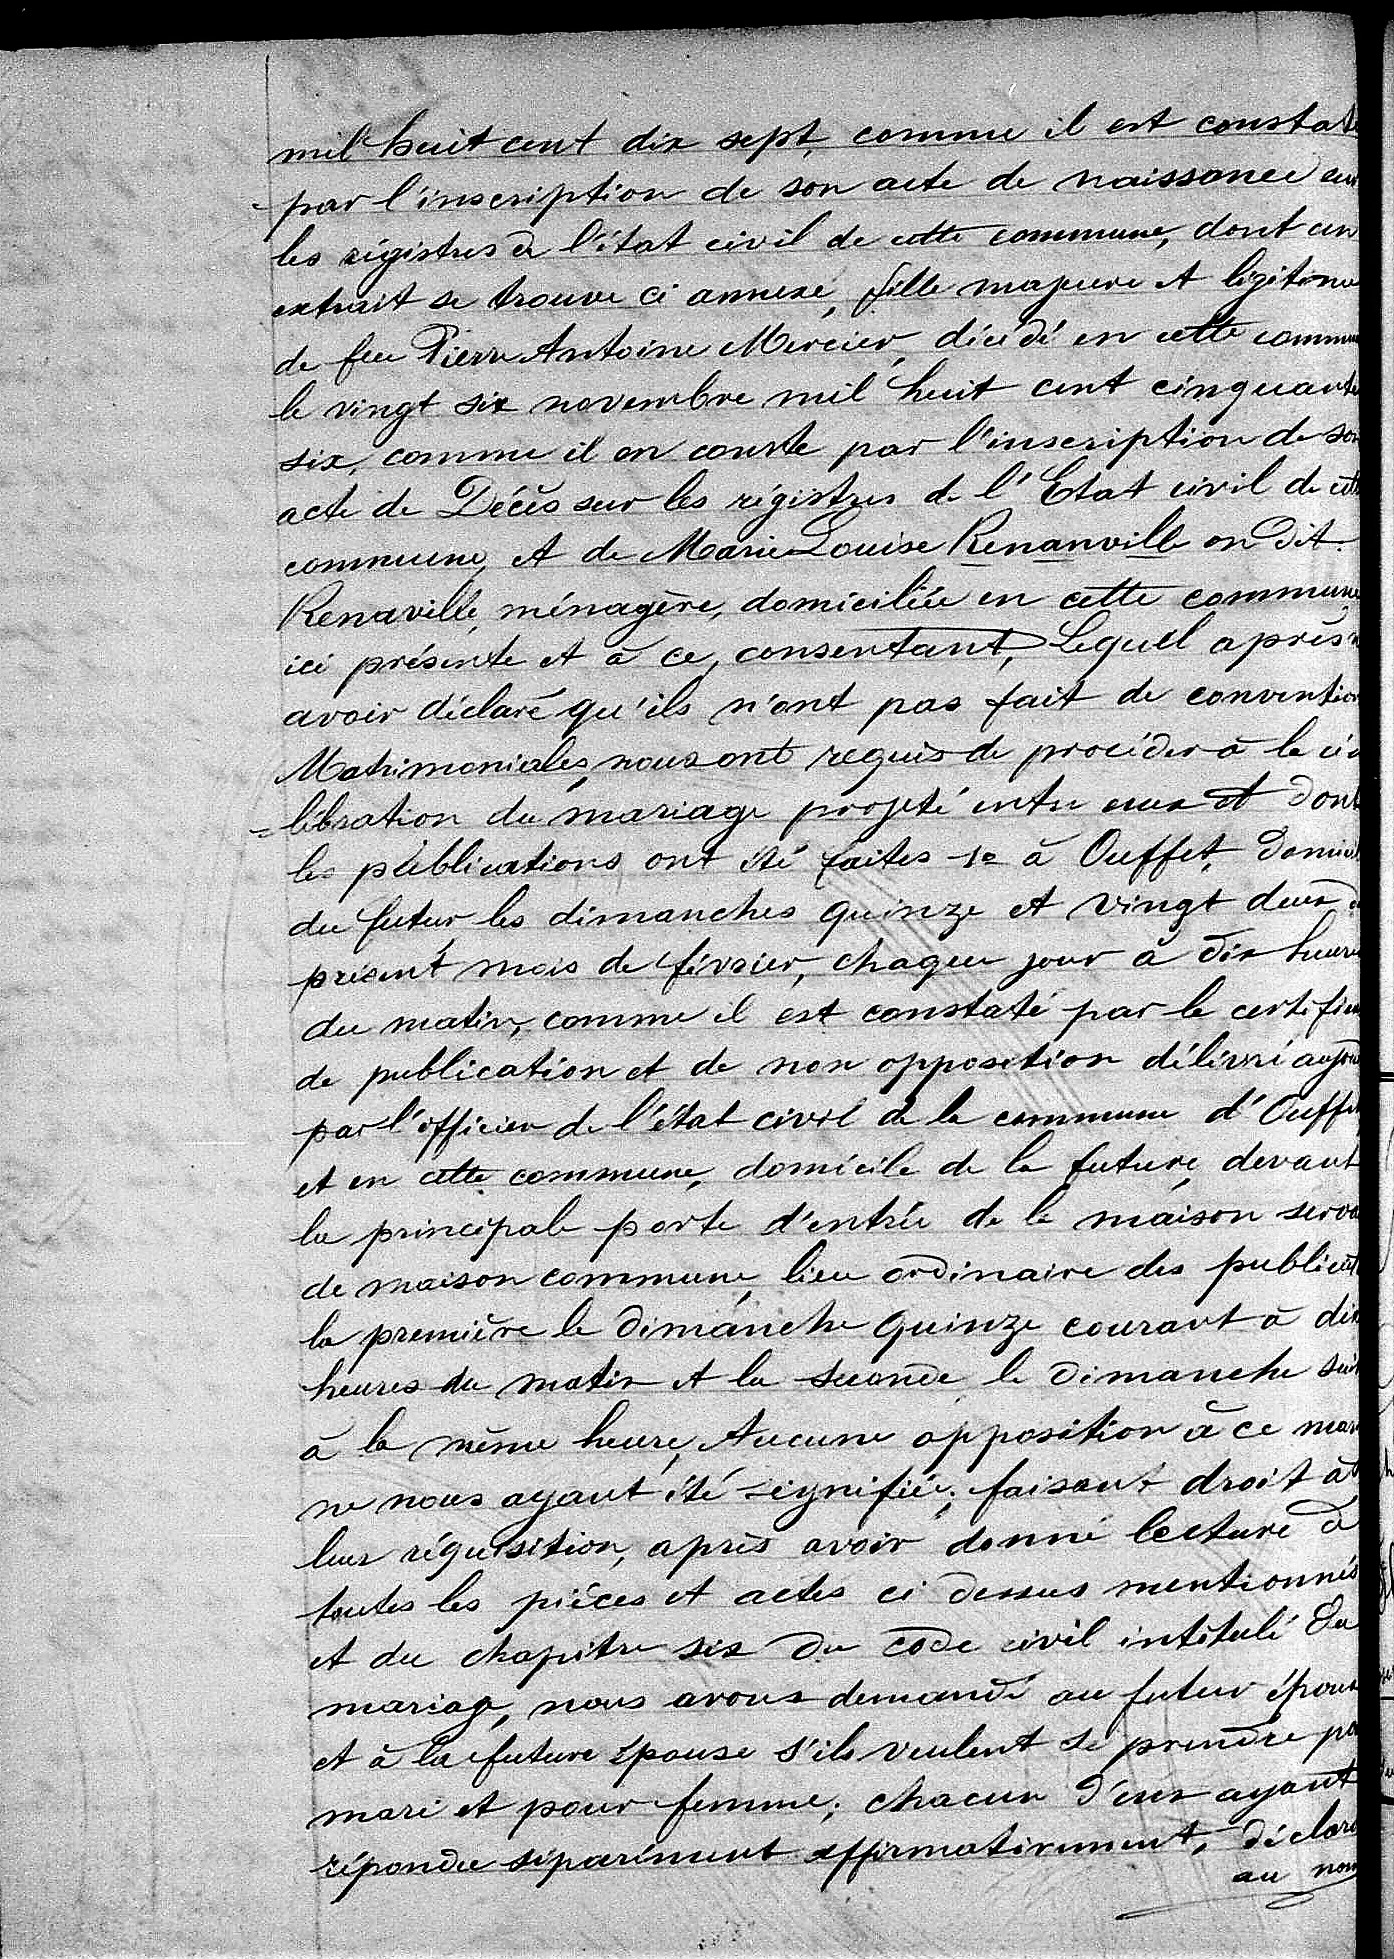 mil huit cent dix sept, comme il est constaté
par l'inscription de son acte de naissance sur
les régistres de l'état civil de cette commune, dont un
extrait se trouve ci annexé, fille majeure et légitime
de feu Pierre Antoine Mercier, décédé en cette commune
le vingt six novembre mil huit cent cinquante
six, comme il en conste par l'inscription de son
acte de Décès sur les régistres de l'Etat civil de cette
commune, et de Marie Louise Renanville on dit
Renaville, ménagère, domiciliée en cette commune
ici présente et à ce, consentant, Lequel après
avoir déclaré qu'ils n'ont pas fait de convention
Matrimoniales, nous ont requis de procéder à la cé
=lébration du mariage projeté entre eux et dont
les publications ont été faites 1º à Ouffet, Domicile
du futur les dimanches quinze et vingt deux
présent mois de février, chaque jour à dix heures
du matin, comme il est constaté par le certificat
de publication et de non opposition délivré aujourd
par l'officier de l'état civil de la commune d'Ouffet
et en cette commune, domicile de la future, devant
la principale porte d'entrée de la maison servant
de maison commune, lieu ordinaire des publicat
la première le dimanche quinze courant à dix
heures du matin et la seconde le dimanche suiv
à la même heure, Aucune opposition à ce mari
ne nous ayant été signifiée; faisant droit à
leur réquisition, après avoir donné lecture de
toutes les pièces et actes ci dessus mentionnés
et du chapitre six du code civil intitulé du
mariage, nous avons demandé au futur époux
et à la future épouse s'ils veulent se prendre po
mari et pour femme; chacun d'eux ayant
répondu séparément affirmativement, déclaro
au nom